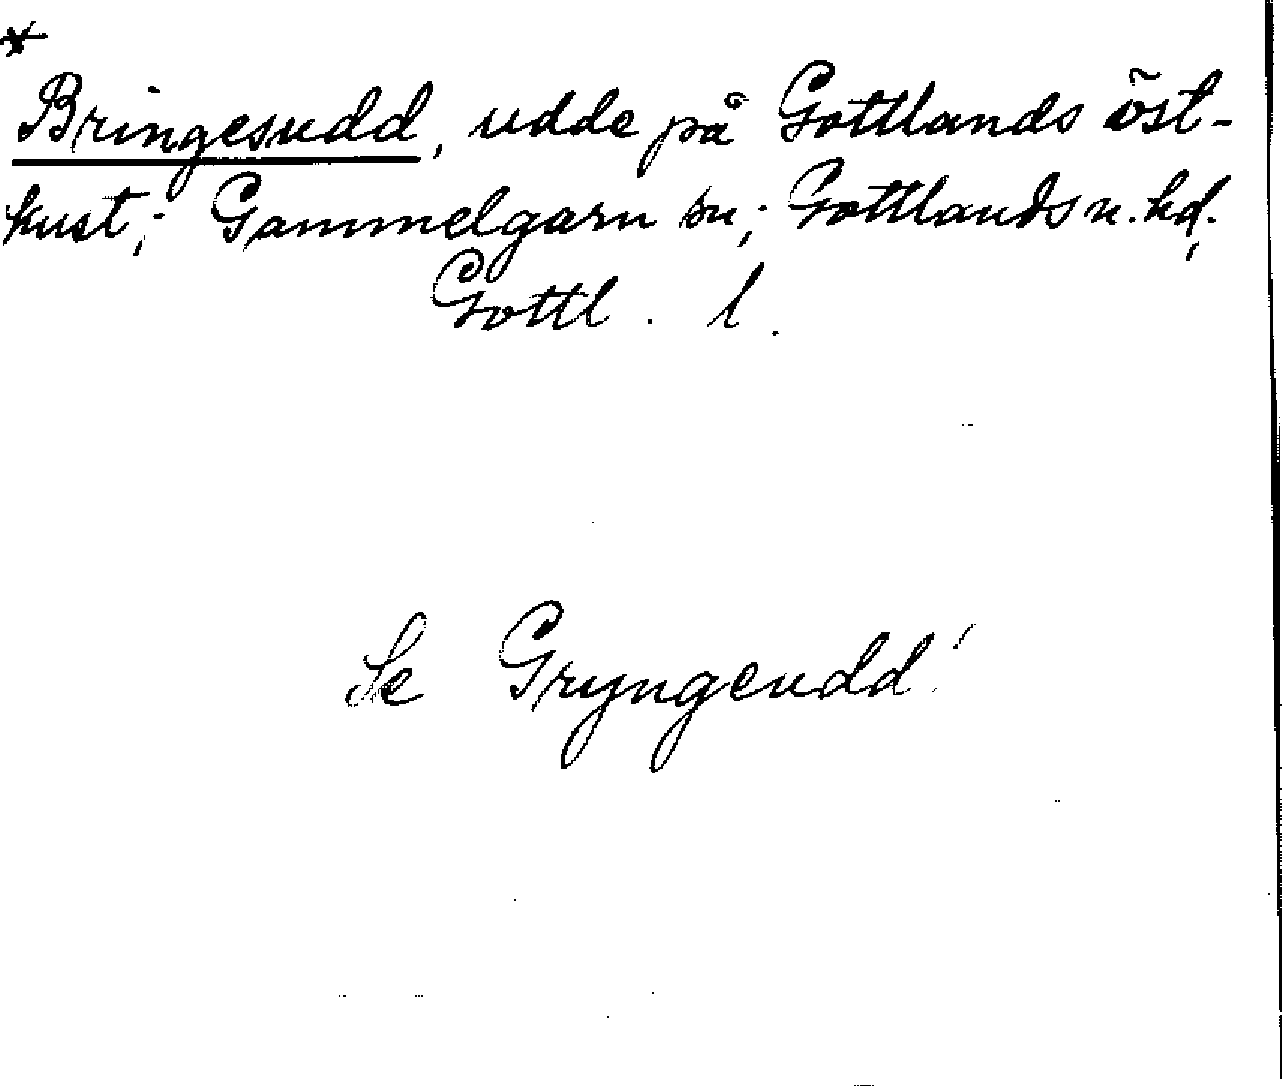 *
Bringesudd, udde på Gottlands öst-
kust; Gammelgarn sn; Gottlands n. hd.,
Gottl. l.
Se Gryngeudd!